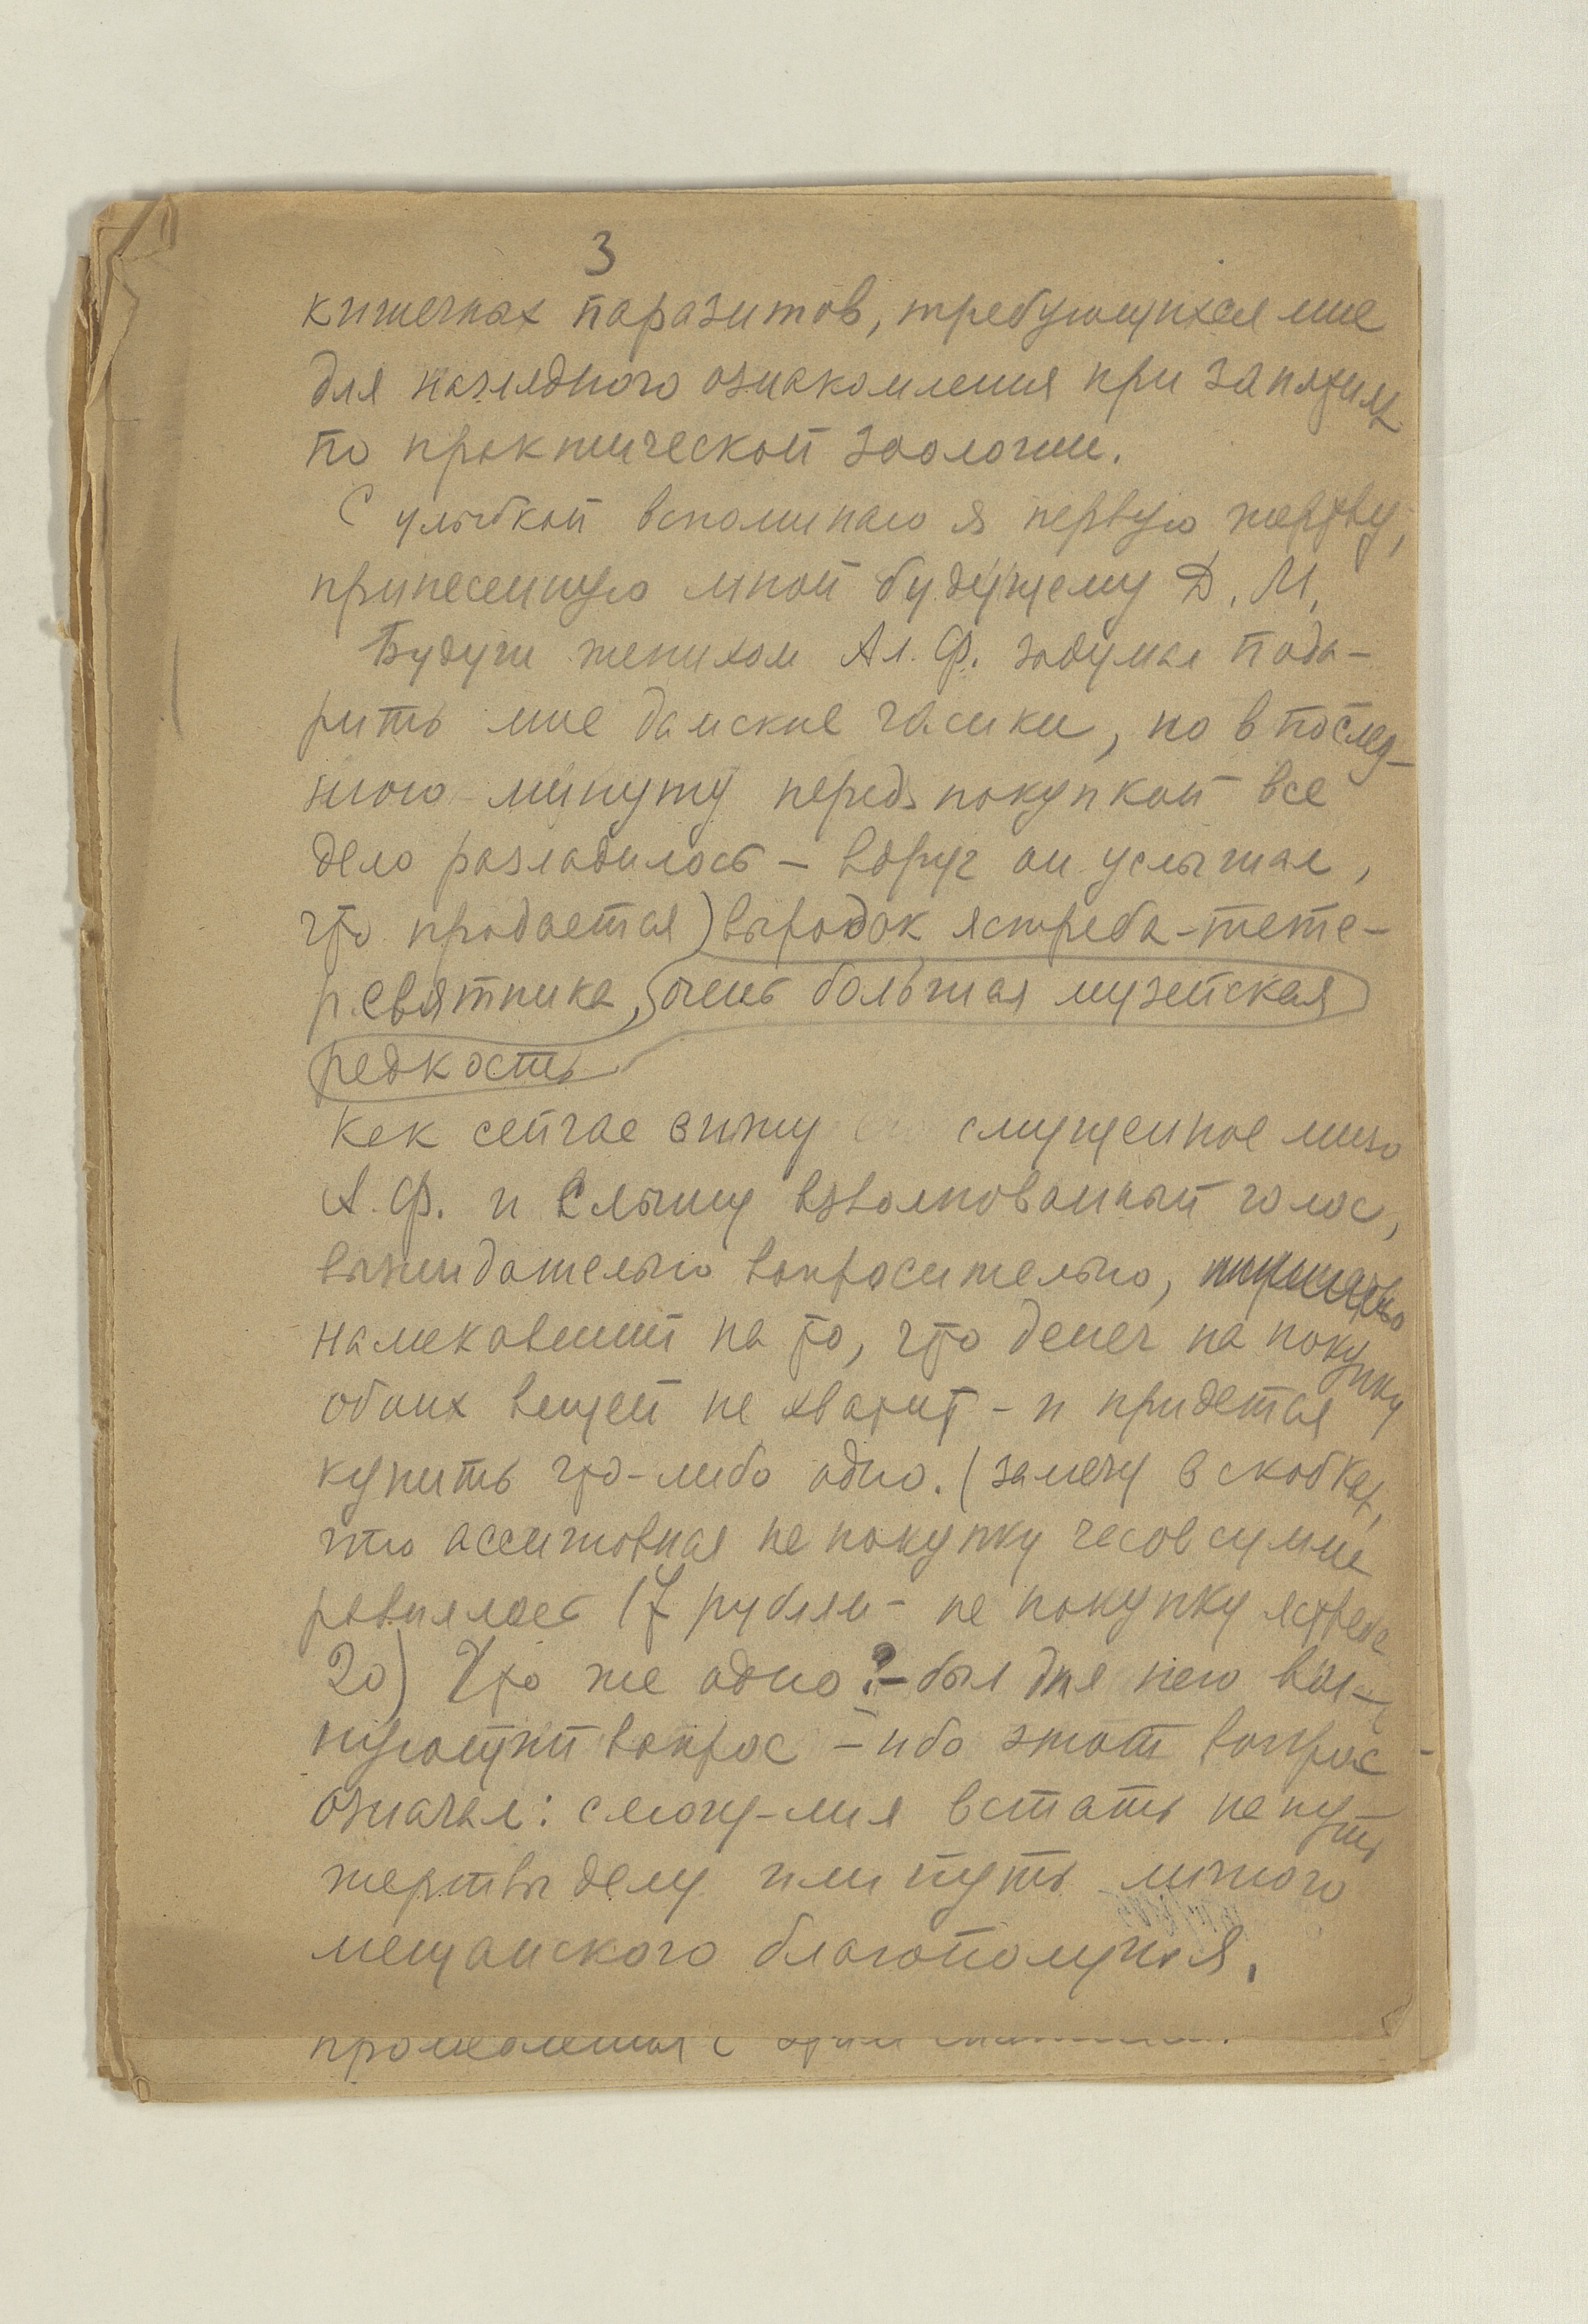 3
кишечных паразитов, требующихся мне
для наглядного ознакомления при занятиях
по практической зоологии.
С улыбкой вспоминаю я первую жертву,
принесенную мной будущему Д. М.
Будучи женихом Ал. Ф. задумал пода-
рить мне дамские часики, но в послед-
нюю минуту передъ покупкой все
дело разладилось – вдруг он услышал,
что продается) выродок ястреба-тете-
ревятника, очень большая музейская
редкость
Как сейчас вижу смущенное лицо
А. Ф. и слышу взволнованный голос,
выжидательно вопросительно,
намекавший на то, что денег на покупку
обоих вещей не хватит – и придется
купить что-либо одно. (замечу в скобках,
что ассигновная на покупку часов сумма
равнялась 17 рублям – на покупку ястреба
20) Что же одно? – был для него вол-
нующий вопрос – ибо этот вопрос
означал: смогу-ли я встать на путь
жертвы делу или путь личного
мещанского благополучия.